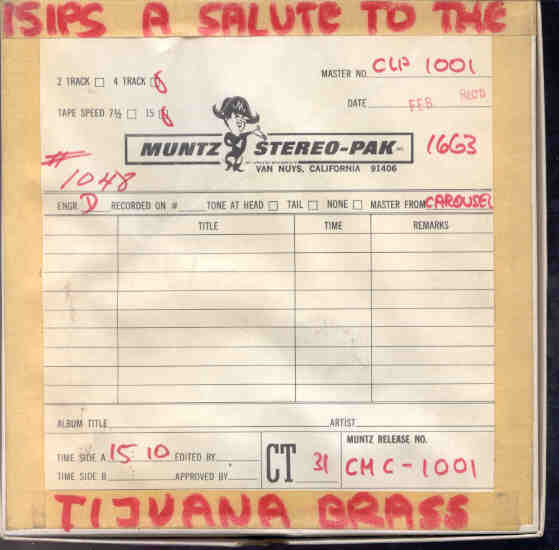 15IPS A SALUTE TO THE
2 TRACK 4 TRACK
MASTER NO. CLP 1001
DATE FEB
TAPE SPEED 7½ 15
MUNTZ STEREO-PAK INC.
1663
VAN NUYS, CALIFORNIA 91406
# 1048
ENGR D RECORDED ON # TONE AT HEAD TAIL NONE MASTER FROM CAROUSEL
TITLE TIME REMARKS
ALBUM TITLE ARTIST
TIME SIDE A 15 10 EDITED BY
TIME SIDE B APPROVED BY
CT 31
MUNTZ RELEASE NO.
CMC-1001
TIJUANA BRASS